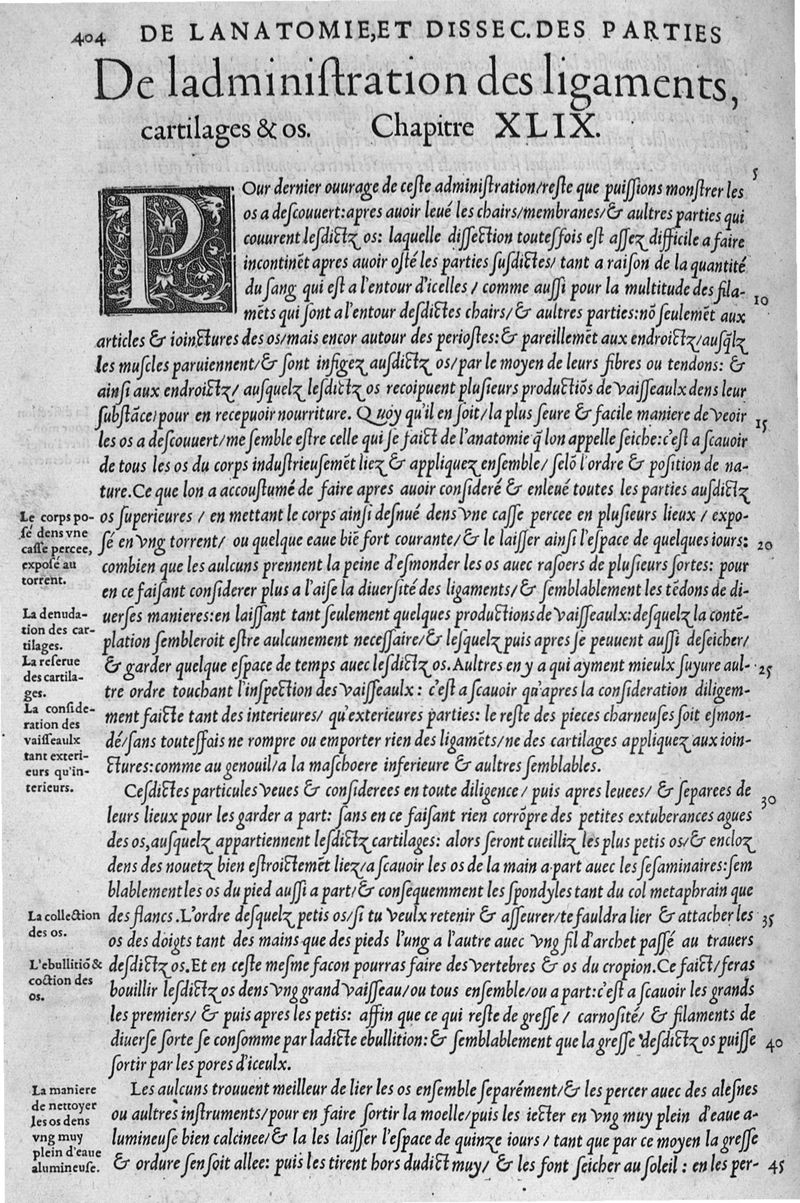 404 DE LANATOMIE,ET DISSEC.DES PARTIES
De ladminiſtration des ligaments,
cartilages & os. Chapitre XLIX.
POur dernier ouurage de ceſte adminiſtration/reſte que puiſſions monſtrer les 5
os a deſcouuert:apres auoir leué les chairs/membranes/& aultres parties qui
couurent leſdictz os: laquelle diſſection touteſfois eſt aſſez difficile a faire
incontinẽt apres auoir oſté les parties ſuſdictes/ tant a raiſon de la quantité
du ſang qui eſt a l'entour d'icelles / comme auſſi pour la multitude des fila- 10
mẽts qui ſont a l'entour deſdictes chairs/& aultres parties:nõ ſeulemẽt aux
articles & ioinctures des os/mais encor autour des perioſtes:& pareillemẽt aux endroictz/auſq̃lz
les muſcles paruiennent/& ſont infigez auſdictz os/par le moyen de leurs fibres ou tendons: &
ainſi aux endroictz/ auſquelz leſdictz os recoipuent pluſieurs productiõs de vaiſſeaulx dens leur
ſubſtãce/pour en recepuoir nourriture. Quoy qu'il en ſoit/la plus ſeure & facile maniere de veoir 15
les os a deſcouuert/me ſemble eſtre celle qui ſe faict de l'anatomie q̃ lon appelle ſeiche:c'eſt a ſcauoir
de tous les os du corps induſtrieuſemẽt liez & appliquez enſemble/ ſelõ l'ordre & poſition de na-
ture.Ce que lon a accouſtumé de faire apres auoir conſideré & enleué toutes les parties auſdictz
os ſuperieures / en mettant le corps ainſi deſnué dens vne caſſe percee en pluſieurs lieux / expo-
ſé en vng torrent/ ou quelque eaue biẽ fort courante/& le laiſſer ainſi l'eſpace de quelques iours: 20
combien que les aulcuns prennent la peine d'eſmonder les os auec raſoers de pluſieurs ſortes: pour
en ce faiſant conſiderer plus a l'aiſe la diuerſité des ligaments/& ſemblablement les tẽdons de di-
uerſes manieres:en laiſſant tant ſeulement quelques productions de vaiſſeaulx:deſquelz la contẽ-
plation ſembleroit eſtre aulcunement neceſſaire/& leſquelz puis apres ſe peuuent auſſi deſeicher/
& garder quelque eſpace de temps auec leſdictz os.Aultres en y a qui ayment mieulx ſuyure aul- 25
tre ordre touchant l'inſpection des vaiſſeaulx : c'eſt a ſcauoir qu'apres la conſideration diligem-
ment faicte tant des interieures/ qu'exterieures parties: le reſte des pieces charneuſes ſoit eſmon-
dé/ſans touteſfais ne rompre ou emporter rien des ligamẽts/ne des cartilages appliquez aux ioin-
ctures:comme au genouil/a la maſchoere inferieure & aultres ſemblables.
Ceſdictes particules veues & conſiderees en toute diligence / puis apres leuees/ & ſeparees de
leurs lieux pour les garder a part: ſans en ce faiſant rien corrõpre des petites extuberances agues 30
des os,auſquelz appartiennent leſdictz cartilages: alors ſeront cueilliz les plus petis os/& encloz
dens des nouetz bien eſtroictemẽt liez/a ſcauoir les os de la main a part auec les ſeſaminaires:ſem
blablement les os du pied auſſi a part/& conſequemment les ſpondyles tant du col metaphrain que
des flancs.L'ordre deſquelz petis os/ſi tu veulx retenir & aſſeurer/te fauldra lier & attacher les 35
os des doigts tant des mains que des pieds l'ung a l'autre auec vng fil d'archet paſſé au trauers
deſdictz os.Et en ceſte meſme facon pourras faire des vertebres & os du cropion.Ce faict/feras
bouillir leſdictz os dens vng grand vaiſſeau/ou tous enſemble/ou a part:c'eſt a ſcauoir les grands
les premiers/ & puis apres les petis: affin que ce qui reſte de greſſe / carnoſité/ & filaments de
diuerſe ſorte ſe conſomme par ladicte ebullition: & ſemblablement que la greſſe deſdictz os puiſſe 40
ſortir par les pores d'iceulx.
Les aulcuns trouuent meilleur de lier les os enſemble ſeparément/& les percer auec des aleſnes
ou aultres inſtruments/pour en faire ſortir la moelle/puis les iecter en vng muy plein d'eaue a-
lumineuſe bien calcinee/& la les laiſſer l'eſpace de quinze iours / tant que par ce moyen la greſſe
& ordure ſen ſoit allee: puis les tirent hors dudict muy/ & les font ſeicher au ſoleil : en les per- 45
Le corps po-
ſé dens vne
caſſe percee,
expoſé au
torrent.
La denuda-
tion des car-
tilages.
La reſerue
des cartila-
ges.
La conſide-
ration des
vaiſſeaulx
tant exteri-
eurs qu'in-
terieurs.
La collection
des os.
L'ebullitiõ &
coction des
os.
La maniere
de nettoyer
les os dens
vng muy
plein d'eaue
alumineuſe.